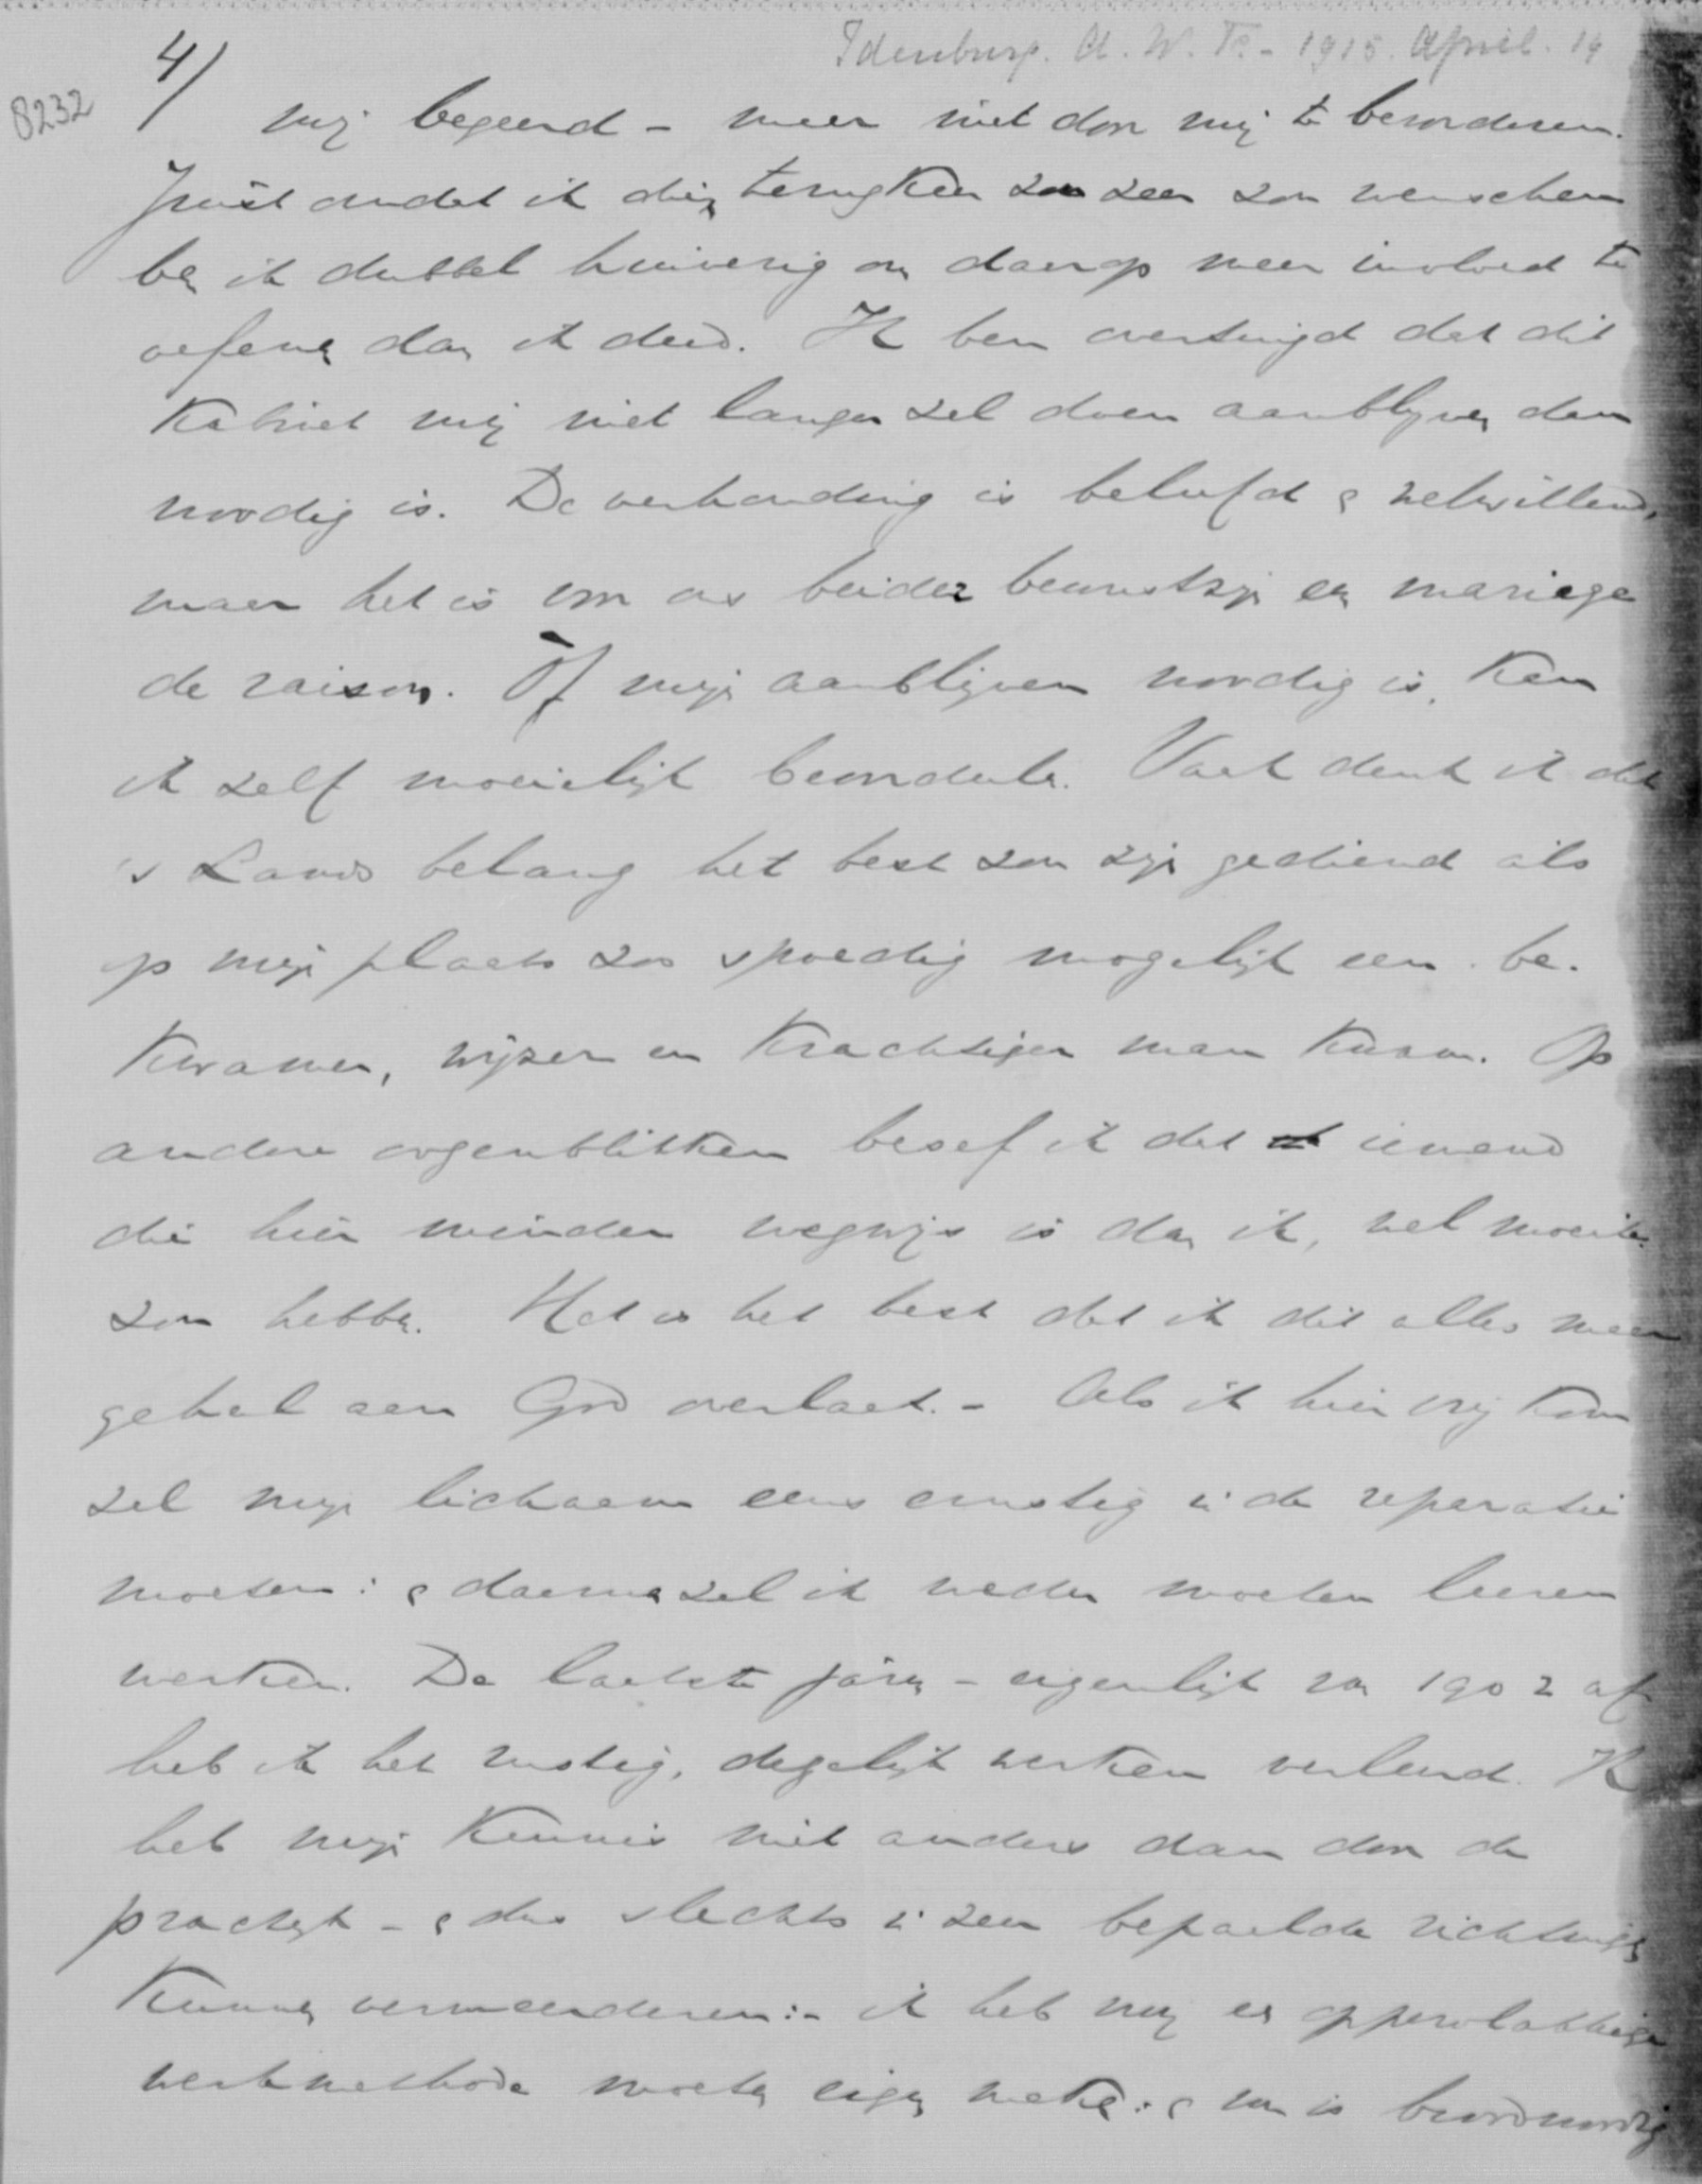 Idenburg. A. W. F. - 1915. April. 14
8232
4/
mij begeerd - maar niet door mij te bevorderen.
Juist omdat ik dien terugkeer zoo zeer zou wenschen
ben ik dubbel huiverig om daarop meer invloed te
oefenen dan ik deed. Ik ben overtuigd dat dit
Kabinet mij niet langer zal doen aanblijven dan
noodig is. De verhouding is beleefd & welwillend,
maar het is voor ons beider bewustzijn een mariage
de raison. Òf mijn aanblijven noodig is, kan
ik zelf moeielijk beoordeelen. Vaak denk ik dat
's Lands belang het best zou zijn gediend als
op mijn plaats zoo spoedig mogelijk een be-
kwamer, wijzer en krachtiger man kwam. Op
andere oogenblikken besef ik dat iemand
die hier minder wegwijs is dan ik, wel moeite
zou hebben. Het is het best dat ik dit alles maar
geheel aan God overlaat. - Als ik hier vrij kom
zal mijn lichaam eens ernstig in de reparatie
moeten: & daarna zal ik weder moeten leeren
werken. De laatste jaren - eigenlijk van 1902 af
heb ik het rustig, degelijk werken verleerd. Ik
heb mijn kennis niet anders dan door de
practijk - & dus slechts in zeer bepaalde richtingen
kunnen vermeerderen: - ik heb mij een oppervlakkige
werkmethode moeten eigen maken: & nu is broodnoodig